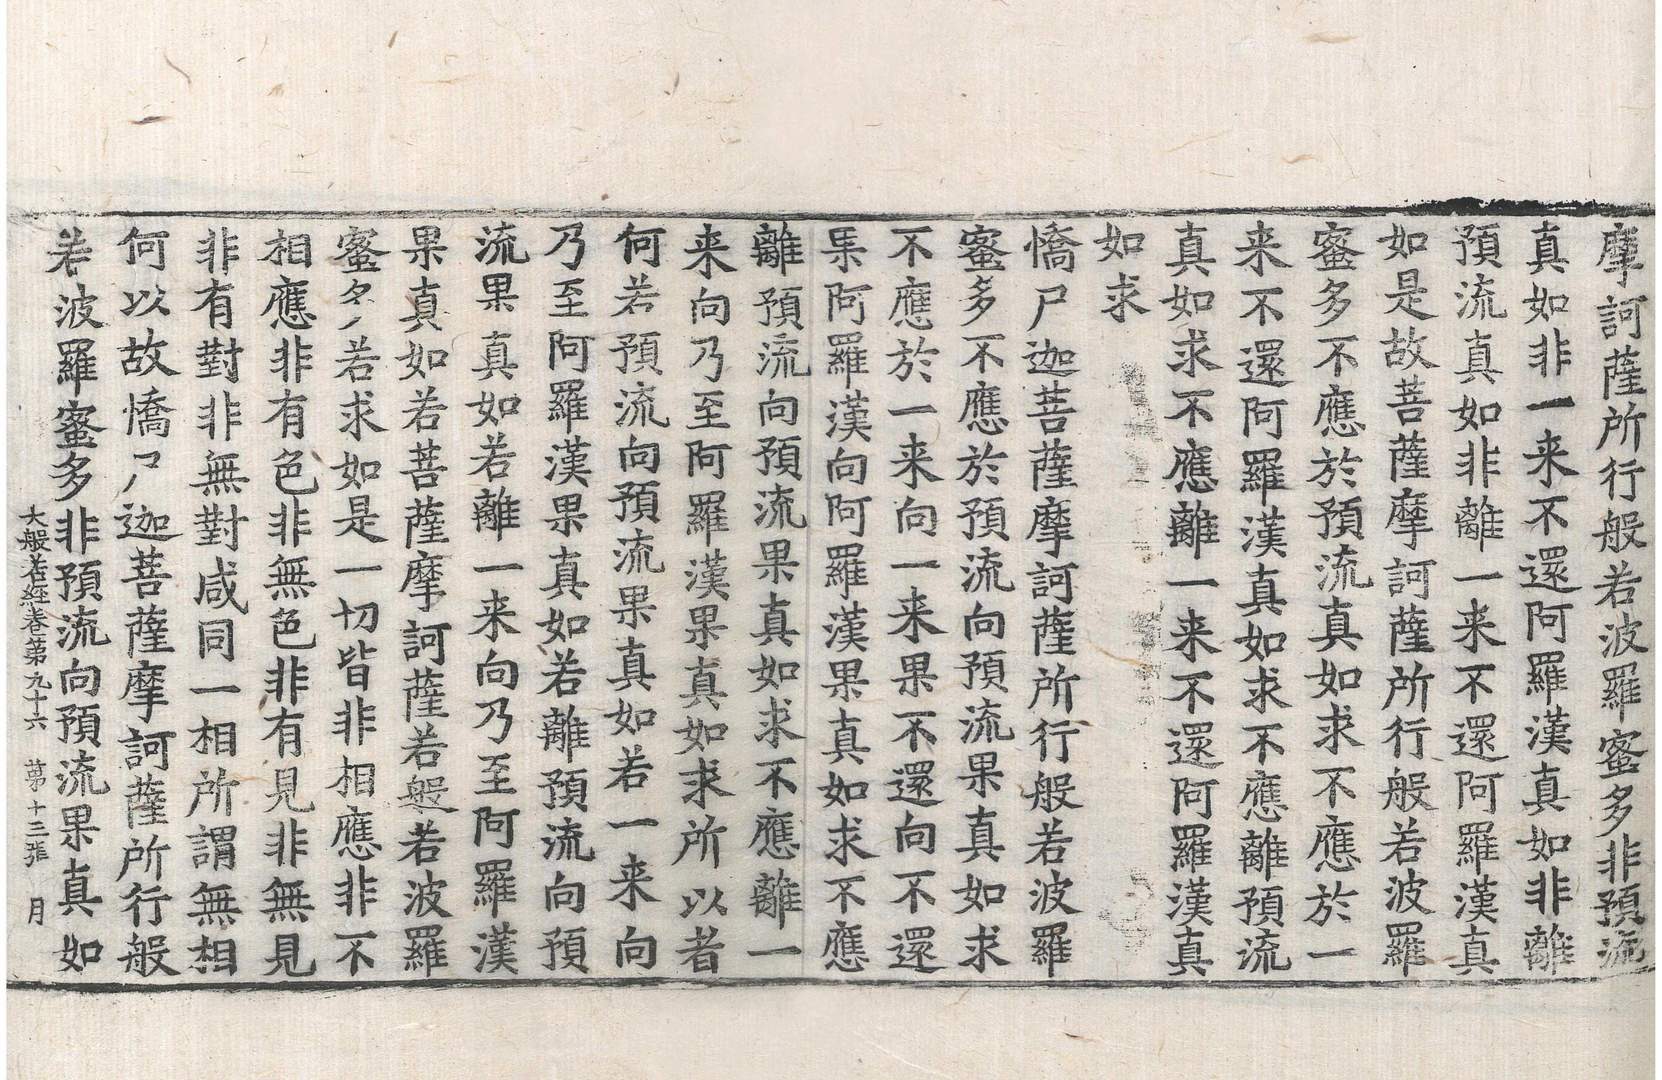 摩訶薩所行般若波羅蜜多非預流
真如非一来不還阿羅漢真如非離
預流真如非離一来不還阿羅漢真
如是故菩薩摩訶薩所行般若波羅
蜜多不應於預流真如求不應於一
来不還阿羅漢真如求不應離預流
真如求不應離一来不還阿羅漢真
如求
憍尸迦菩薩摩訶薩所行般若波羅
蜜多不應於預流向預流果真如求
不應於一来向一来果不還向不還
果阿羅漢向阿羅漢果真如求不應
離預流向預流果真如求不應離一
来向乃至阿羅漢果真如求所以者
何若預流向預流果真如若一来向
乃至阿羅漢果真如若離預流向預
流果真如若離一来向乃至阿羅漢
果真如若菩薩摩訶薩若般若波羅
蜜多若求如是一切皆非相應非不
相應非有色非無色非有見非無見
非有對非無對咸同一相所謂無相
何以故憍尸迦菩薩摩訶薩所行般
若波羅蜜多非預流向預流果真如
大般若經卷第九十六 第十三張 月